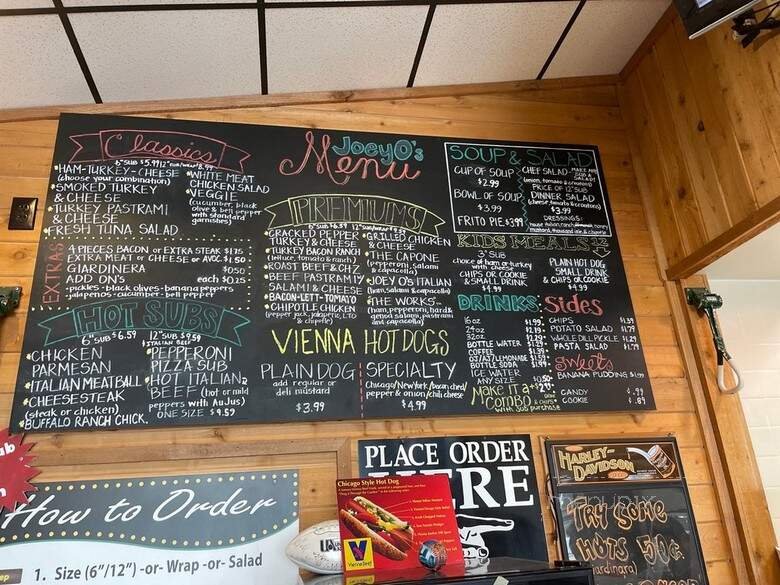 Joey O's
Menu
Classics
6" SUB $5.99 12" SUB/WRAP
•HAM-TURKEY-CHEESE
(choose your combination)
•SMOKED TURKEY
& CHEESE
•TURKEY PASTRAMI
& CHEESE
•FRESH TUNA SALAD
•WHITE MEAT
CHICKEN SALAD
•VEGGIE
(cucumber, black
olive & bell pepper
with standard
garnishes)
EXTRAS
4 PIECES BACON or EXTRA STEAK $1.75
EXTRA MEAT or CHEESE or AVOC. $1.50
GIARDINERA $0.50
ADD ON'S each $0.25
-pickles-black olives-banana peppers
-jalapenos-cucumber-bell pepper
HOT SUBS
6" SUB $6.59
•CHICKEN
PARMESAN
•ITALIAN MEATBALL
•CHEESESTEAK
(steak or chicken)
•BUFFALO RANCH CHICK.
12" SUB $9.59
•ITALIAN BEEF
•PEPPERONI
PIZZA SUB
•HOT ITALIAN
BEEF (hot or mild
peppers with AuJus)
ONE SIZE $9.59
PREMIUMS
6" SUB 12" SUB/WRAP
•CRACKED PEPPER
TURKEY & CHEESE
•TURKEY BACON RANCH
(lettuce, tomato & ranch)
•ROAST BEEF & CHZ
•BEEF PASTRAMI
•SALAMI & CHEESE
•BACON-LETT-TOMATO
•CHIPOTLE CHICKEN
(pepper jack, jalapeño, LTO
& chipotle)
•GRILLED CHICKEN
& CHEESE
•THE CAPONE
(pepperoni, salami
& capacolla)
•JOEY O'S ITALIAN
(ham, salami & capacolla)
•THE WORKS...
(ham, pepperoni, hard &
genoa salami, pastrami
and capacolla)
VIENNA HOT DOGS
PLAIN DOG
add regular or
deli mustard
$3.99
SPECIALTY
Chicago/New York/bacon ched/
pepper & onion/chili cheese
$4.99
SOUP & SALAD
CUP OF SOUP
$2.99
BOWL OF SOUP
$3.99
FRITO PIE $3.99
CHEF SALAD-MAKE ANY
SUB A
SALAD!
(onion, tomato & croutons)
PRICE OF 12" SUB
DINNER SALAD
(cheese, tomato & croutons)
$3.99
DRESSINGS:
KIDS MEALS
3" SUB
choice of ham or turkey
with cheese
CHIPS OR COOKIE
& SMALL DRINK
$4.99
PLAIN HOT DOG
SMALL DRINK
& CHIPS OR COOKIE
$4.99
DRINKS
16 oz $1.99
24 oz
32 oz
BOTTLE WATER
COFFEE
BOTTLE SODA
ICE WATER
ANY SIZE
Make it a
"COMBO"
& CHIPS
with sub purchase
Sides
CHIPS $1.39
POTATO SALAD $1.79
WHOLE DILL PICKLE $1.29
PASTA SALAD $1.79
Sweets
BANANA PUDDING
CANDY $.99
COOKIE $.89
How to Order
1. Size (6"/12") -or- Wrap -or- Salad
Chicago Style Hot Dog
V
Vienna Beef
PLACE ORDER
HERE
HARLEY-
DAVIDSON
TRY SOME
HOTS 50¢